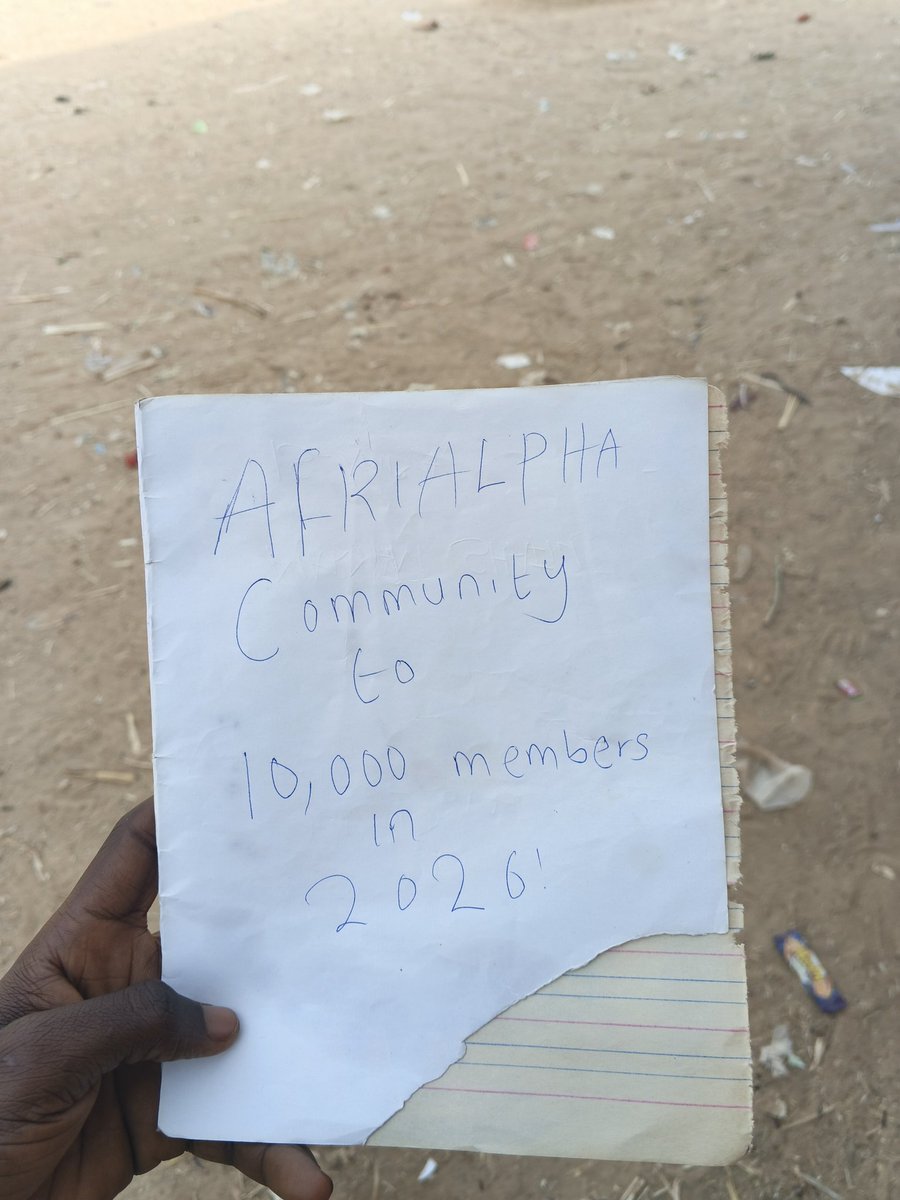 AFRIALPHA
Community
to
10,000 members
in
2026!